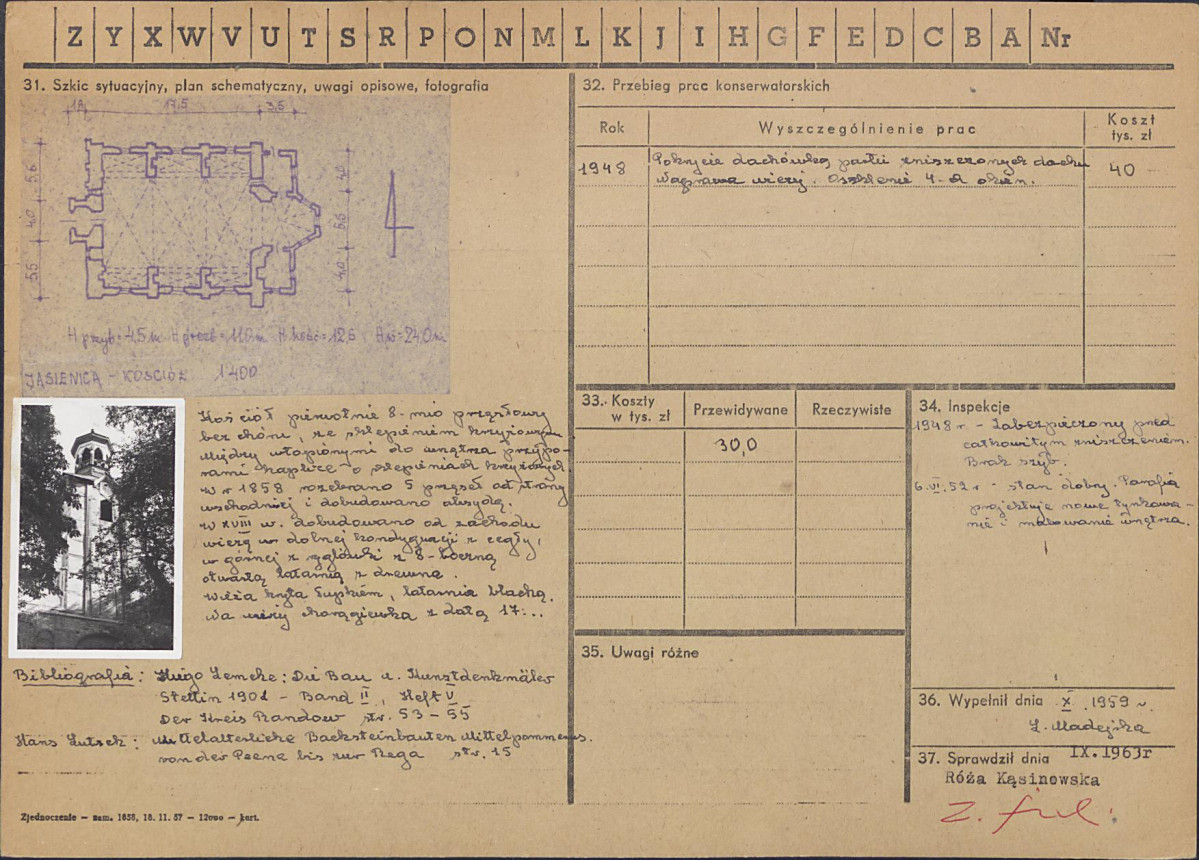 Z Y X W V U T S R P O N M L K J I H G F E D C B A Nr
31. Szkic sytuacyjny, plan schematyczny, uwagi opisowe, fotografia
17,5 3,5
5,6 4,0 5,5
4,0 6,6 4,0
H przyb=4,5m H prezb=11,0m H kość=12,6 H w=24,0m
JASIENICA - KOŚCIÓŁ 1:400
Kościół pierwotnie 8-mio przęsłowy
bez chóru, ze sklepieniem krzyżowym
Między wtopionymi do wnętrza przypo-
rami kaplice o sklepieniach krzyżowych.
W r 1858 rozebrano 5 przęseł od strony
wschodniej i dobudowano absydę.
W XVIII w. dobudowano od zachodu
wieżę w dolnej kondygnacji z cegły,
w górnej z ryglówki z 8-boczną
otwartą latarnią z drewna.
Wieża kryta łupkiem, latarnia blachą.
Na wieży chorągiewka z datą 17:..
Bibliografia: Hugo Lemcke: Die Bau u. Kunstdenkmäler
Stettin 1901 - Band II, Heft V
Der Kreis Randow str. 53 - 55
Hans Lutsch: Mittelalterliche Backsteinbauten Mittelpommerns.
von der Peene bis zur Rega str. 15
Zjednoczenie - zam. 1858, 18. 11. 57 - 12000 - kart.
32. Przebieg prac konserwatorskich
Rok Wyszczególnienie prac Koszt tys. zł
1948 Pokrycie dachówką partii zniszczonych dachu 40
Naprawa wieży. Oszklenie 4-ch okien.
33. Koszty w tys. zł Przewidywane Rzeczywiste
30,0
34. Inspekcje
1948 r - Zabezpieczony przed
całkowitym zniszczeniem.
Brak szyb.
6.VI.52 r - stan dobry. Parafia
projektuje nowe tynkowa-
nie i malowanie wnętrza.
35. Uwagi różne
36. Wypełnił dnia X 1959 r.
L. Madejska
37. Sprawdził dnia IX.1963r
Róża Kąsinowska